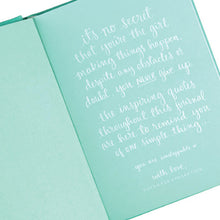 it's no secret
that you're the girl
making things happen
despite any obstacles or
doubt. you never give up.
the inspiring quotes
throughout this journal
are here to remind you
of one simple thing:
you are unstoppable
with love,